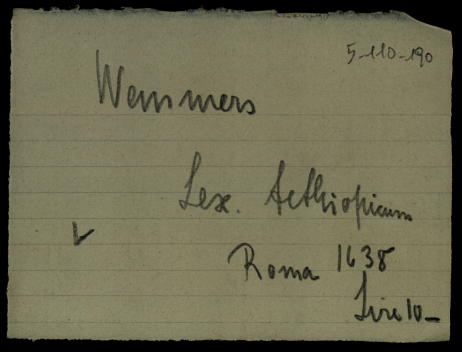 5-110-190
Wemmers
Lex. Aethiopicum
Roma 1638
Lire 10_